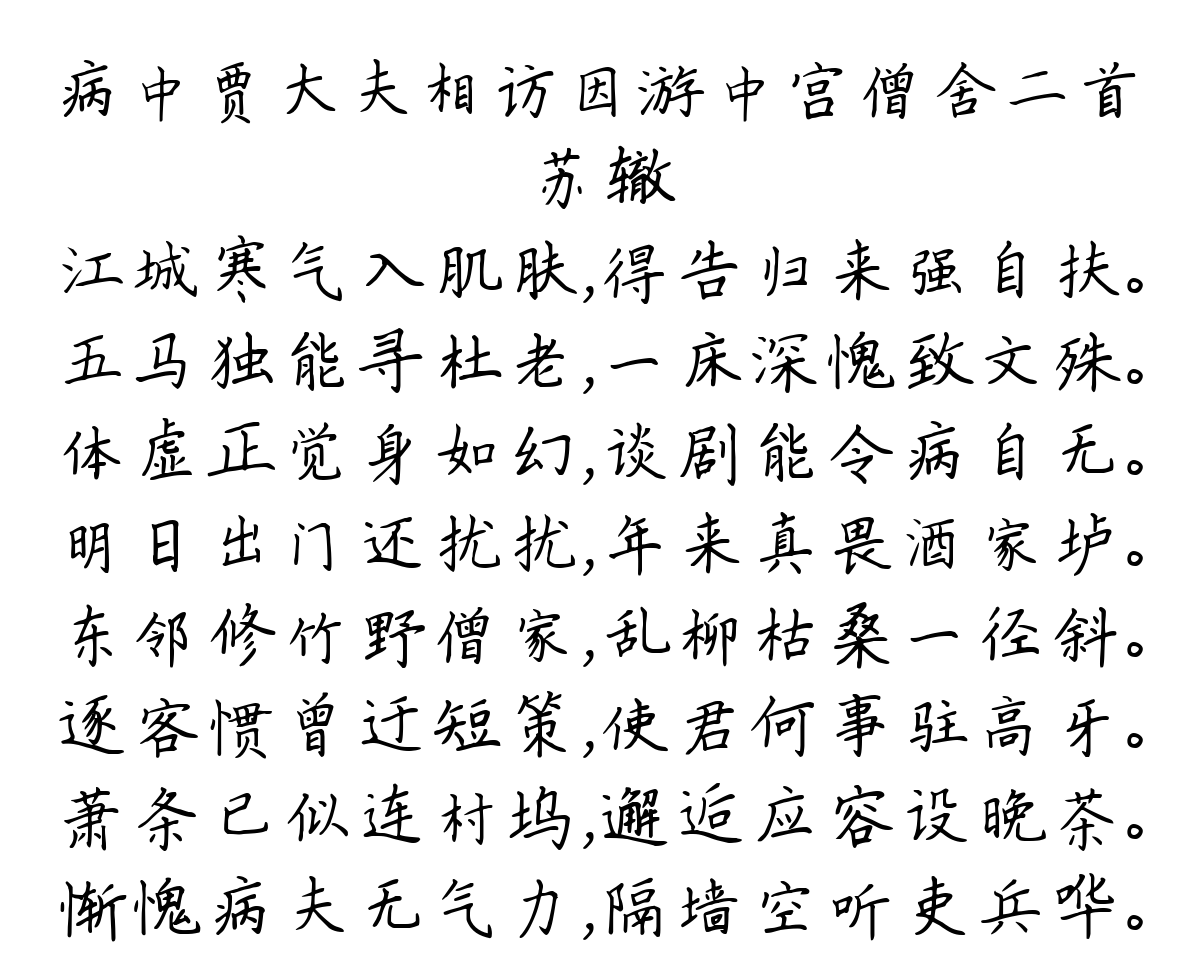 病中贾大夫相访因游中宫僧舍二首
苏辙
江城寒气入肌肤,得告归来强自扶。
五马独能寻杜老,一床深愧致文殊。
体虚正觉身如幻,谈剧能令病自无。
明日出门还扰扰,年来真畏酒家垆。
东邻修竹野僧家,乱柳枯桑一径斜。
逐客惯曾迂短策,使君何事驻高牙。
萧条已似连村坞,邂逅应容设晚茶。
惭愧病夫无气力,隔墙空听吏兵哗。